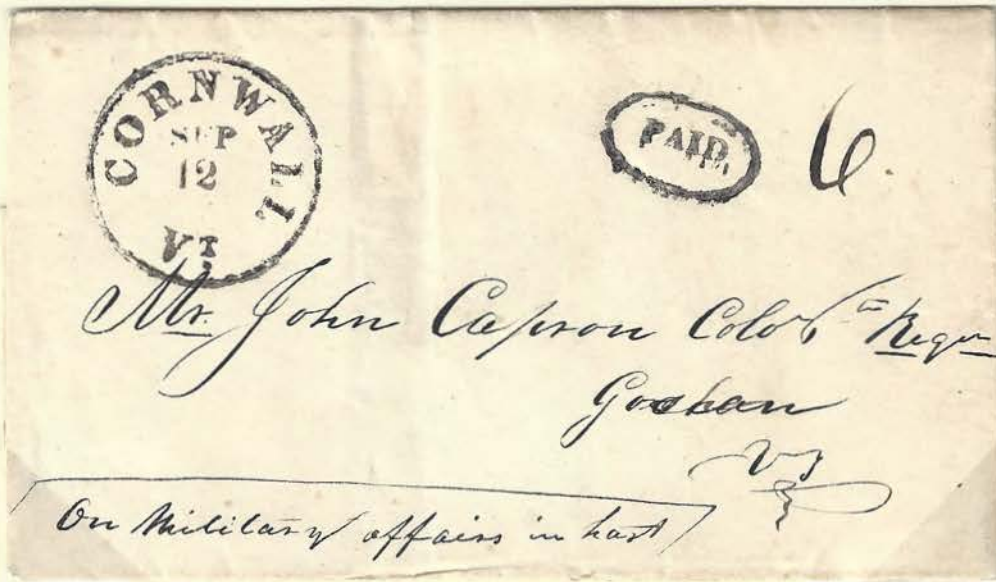 CORNWALL
SEP
12
VT.
PAID.
6
Mr. John Capron Colo 6th Regm
Goshan
Vt
On Military affairs in hast